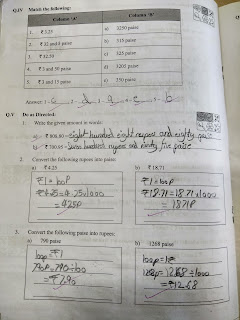 Q.IV Match the following:
Column 'A' Column 'B'
1. ₹ 5.25 a) 3250 paise
2. ₹ 32 and 5 paise b) 115 paise
3. ₹ 32.50 c) 525 paise
4. ₹ 3 and 50 paise d) 3205 paise
5. ₹ 1 and 15 paise e) 350 paise
Answer: 1. c 2. d 3. a 4. e 5. b
Q.V Do as Directed:
1. Write the given amount in words:
eight hundred eight rupees and eighty paise
seven hundred rupees and ninety five paise
2. Convert the following rupees into paise:
a) ₹4.25 b) ₹ 18.71
₹1 = 100P ₹1 = 100P
₹4.25 = 4.25×1000 ₹18.71 = 18.71×1000
= 425P = 1871P
3. Convert the following paise into rupees:
a) 790 paise b) 1268 paise
100P = ₹1 100P = ₹1
790P = 790÷100 1268P = 1268÷1000
= ₹7.90 = ₹12.68